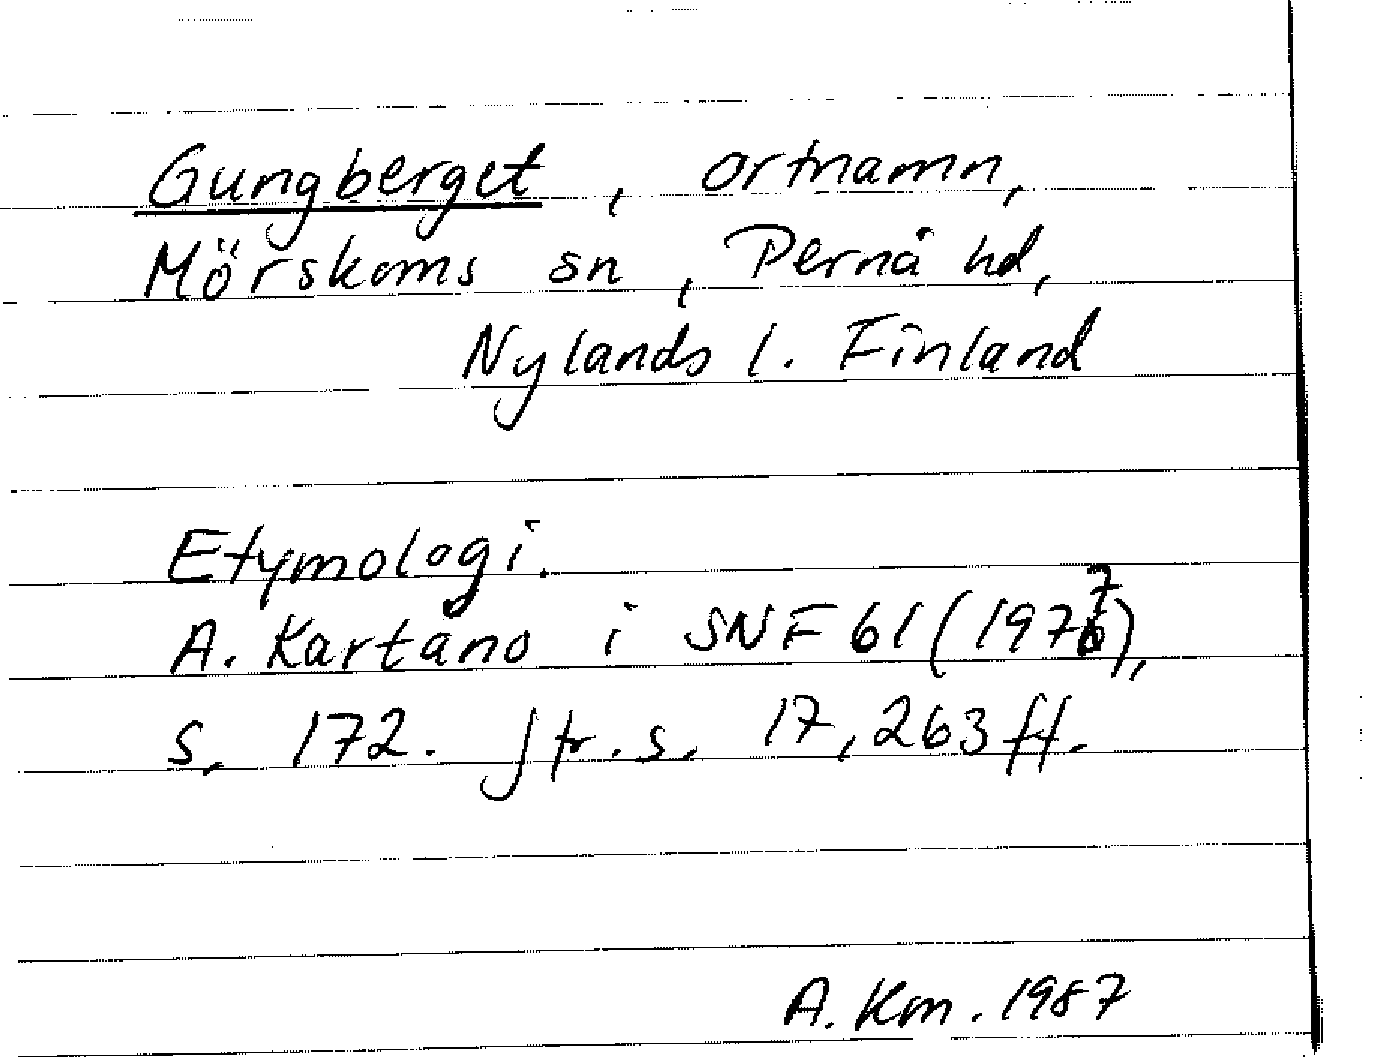 Gungberget, ortnamn,
Mörskoms sn, Pernå hd,
Nylands l. Finland
Etymologi.
A. Kartano i SNF 61 (1977),
s. 172. Jfr. s. 17, 263 ff.
A. Km. 1987